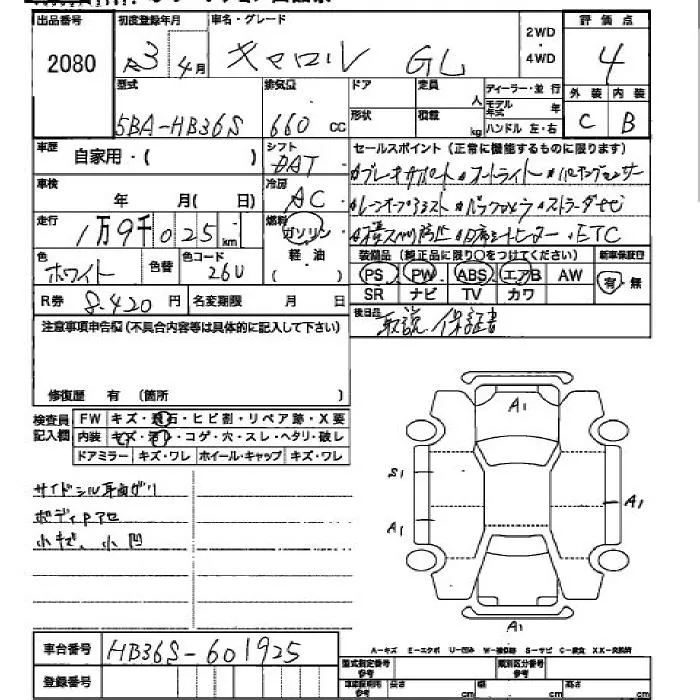 出品番号 初度登録年月 車名・グレード 2WD・4WD 評価点
2080 R3 4月 キャロル GL 4
型式 排気量 ドア 定員 人 ディーラー・並行 外装 内装
5BA-HB36S 660cc 形状 積載 kg モデル年式 年 ハンドル 左・右 C B
車歴 自家用・( ) シフト DAT セールスポイント(正常に機能するものに限ります)
ブレーキサポート オートライト パーキングセンサー
車検 年 月(日) 冷房 AC
バックカメラ ステラーダナビ
走行 1万9千025km 燃料 ガソリン 軽・油 ( )
シートヒーター ETC
色 ホワイト 色替 色コード 26U
装備品(純正品に限り○をつけてください) 新車保証書
PS PW ABS エアB AW 有・無
SR ナビ TV カワ
R券 8,420円 名変期限 月 日 後日品 取説 保証書
注意事項申告欄(不具合内容等は具体的に記入して下さい)
修復歴 有 (箇所 )
検査員記入欄 FW キズ・飛石・ヒビ割・リペア跡・X要
内装 キズ・汚れ・コゲ・穴・スレ・ヘタリ・破レ
ドアミラー キズ・ワレ ホイール・キャップ キズ・ワレ
サイドシル耳曲ガリ
ボディPアセ
小キズ、小凹
A1
S1
A1
A1
A1
A-キズ E-エクボ U-凹み W-補修跡 S-サビ C-腐食 XX-交換済
車台番号 HB36S-601925
型式指定番号 参考 類別区分番号 参考
登録番号
車庫証明用 参考 長さ cm 幅 cm 高さ cm